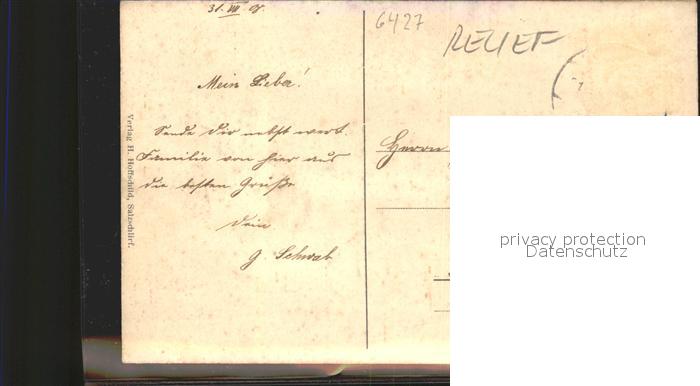 31. VIII 
6427
RELIEF
Mein Lieber!
Sende Dir nebst wert.
Familie von hier aus
die besten Grüße
Dein
G. Schwab
Herrn
Verlag H. Hoffschild, Salzschlirf.
privacy protection
Datenschutz